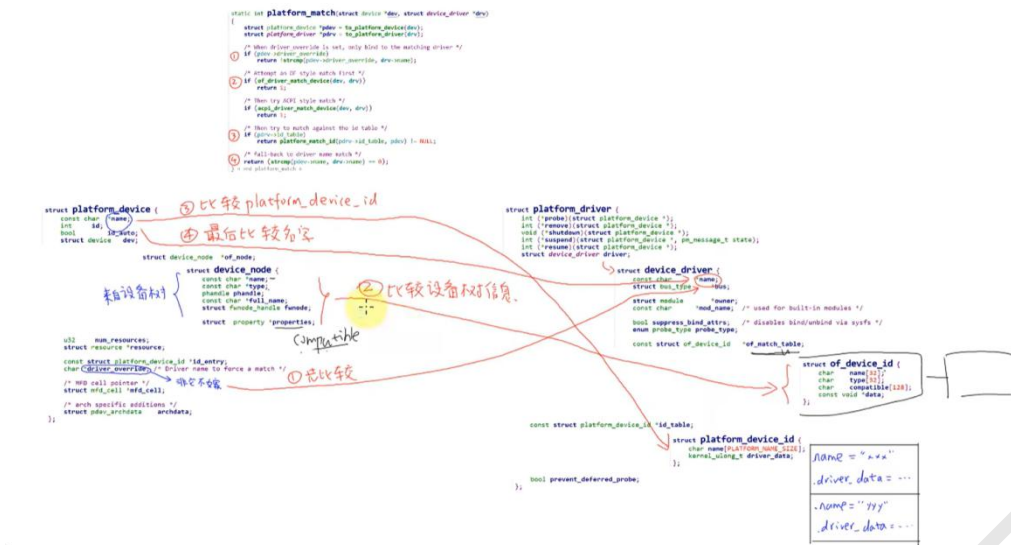 static int platform_match(struct device *dev, struct device_driver *drv)
{
struct platform_device *pdev = to_platform_device(dev);
struct platform_driver *pdrv = to_platform_driver(drv);
/* When driver_override is set, only bind to the matching driver */
① if (pdev->driver_override)
return !strcmp(pdev->driver_override, drv->name);
/* Attempt an OF style match first */
② if (of_driver_match_device(dev, drv))
return 1;
/* Then try ACPI style match */
if (acpi_driver_match_device(dev, drv))
return 1;
/* Then try to match against the id table */
③ if (pdrv->id_table)
return platform_match_id(pdrv->id_table, pdev) != NULL;
/* fall-back to driver name match */
④ return (strcmp(pdev->name, drv->name) == 0);
} « end platform_match »
struct platform_device {
const char *name;
int id;
bool id_auto;
struct device dev;
③ 比较platform_device_id
④ 最后比较名字
struct device_node *of_node;
struct device_node {
const char *name;
const char *type;
phandle phandle;
const char *full_name;
struct fwnode_handle fwnode;
struct property *properties;
来自设备树
② 比较设备树信息.
compatible
u32 num_resources;
struct resource *resources;
const struct platform_device_id *id_entry;
char *driver_override; /* Driver name to force a match */
/* MFD cell pointer */
struct mfd_cell *mfd_cell;
/* arch specific additions */
struct pdev_archdata archdata;
};
① 先比较
struct platform_driver {
int (*probe)(struct platform_device *);
int (*remove)(struct platform_device *);
void (*shutdown)(struct platform_device *);
int (*suspend)(struct platform_device *, pm_message_t state);
int (*resume)(struct platform_device *);
struct device_driver driver;
struct device_driver {
const char *name;
struct bus_type *bus;
struct module *owner;
const char *mod_name; /* used for built-in modules */
bool suppress_bind_attrs; /* disables bind/unbind via sysfs */
enum probe_type probe_type;
const struct of_device_id *of_match_table;
struct of_device_id {
char name[32];
char type[32];
char compatible[128];
const void *data;
};
const struct platform_device_id *id_table;
struct platform_device_id {
char name[PLATFORM_NAME_SIZE];
kernel_ulong_t driver_data;
};
bool prevent_deferred_probe;
};
.name = "xxx"
.driver_data = ...
.name = "yyy"
.driver_data = ...